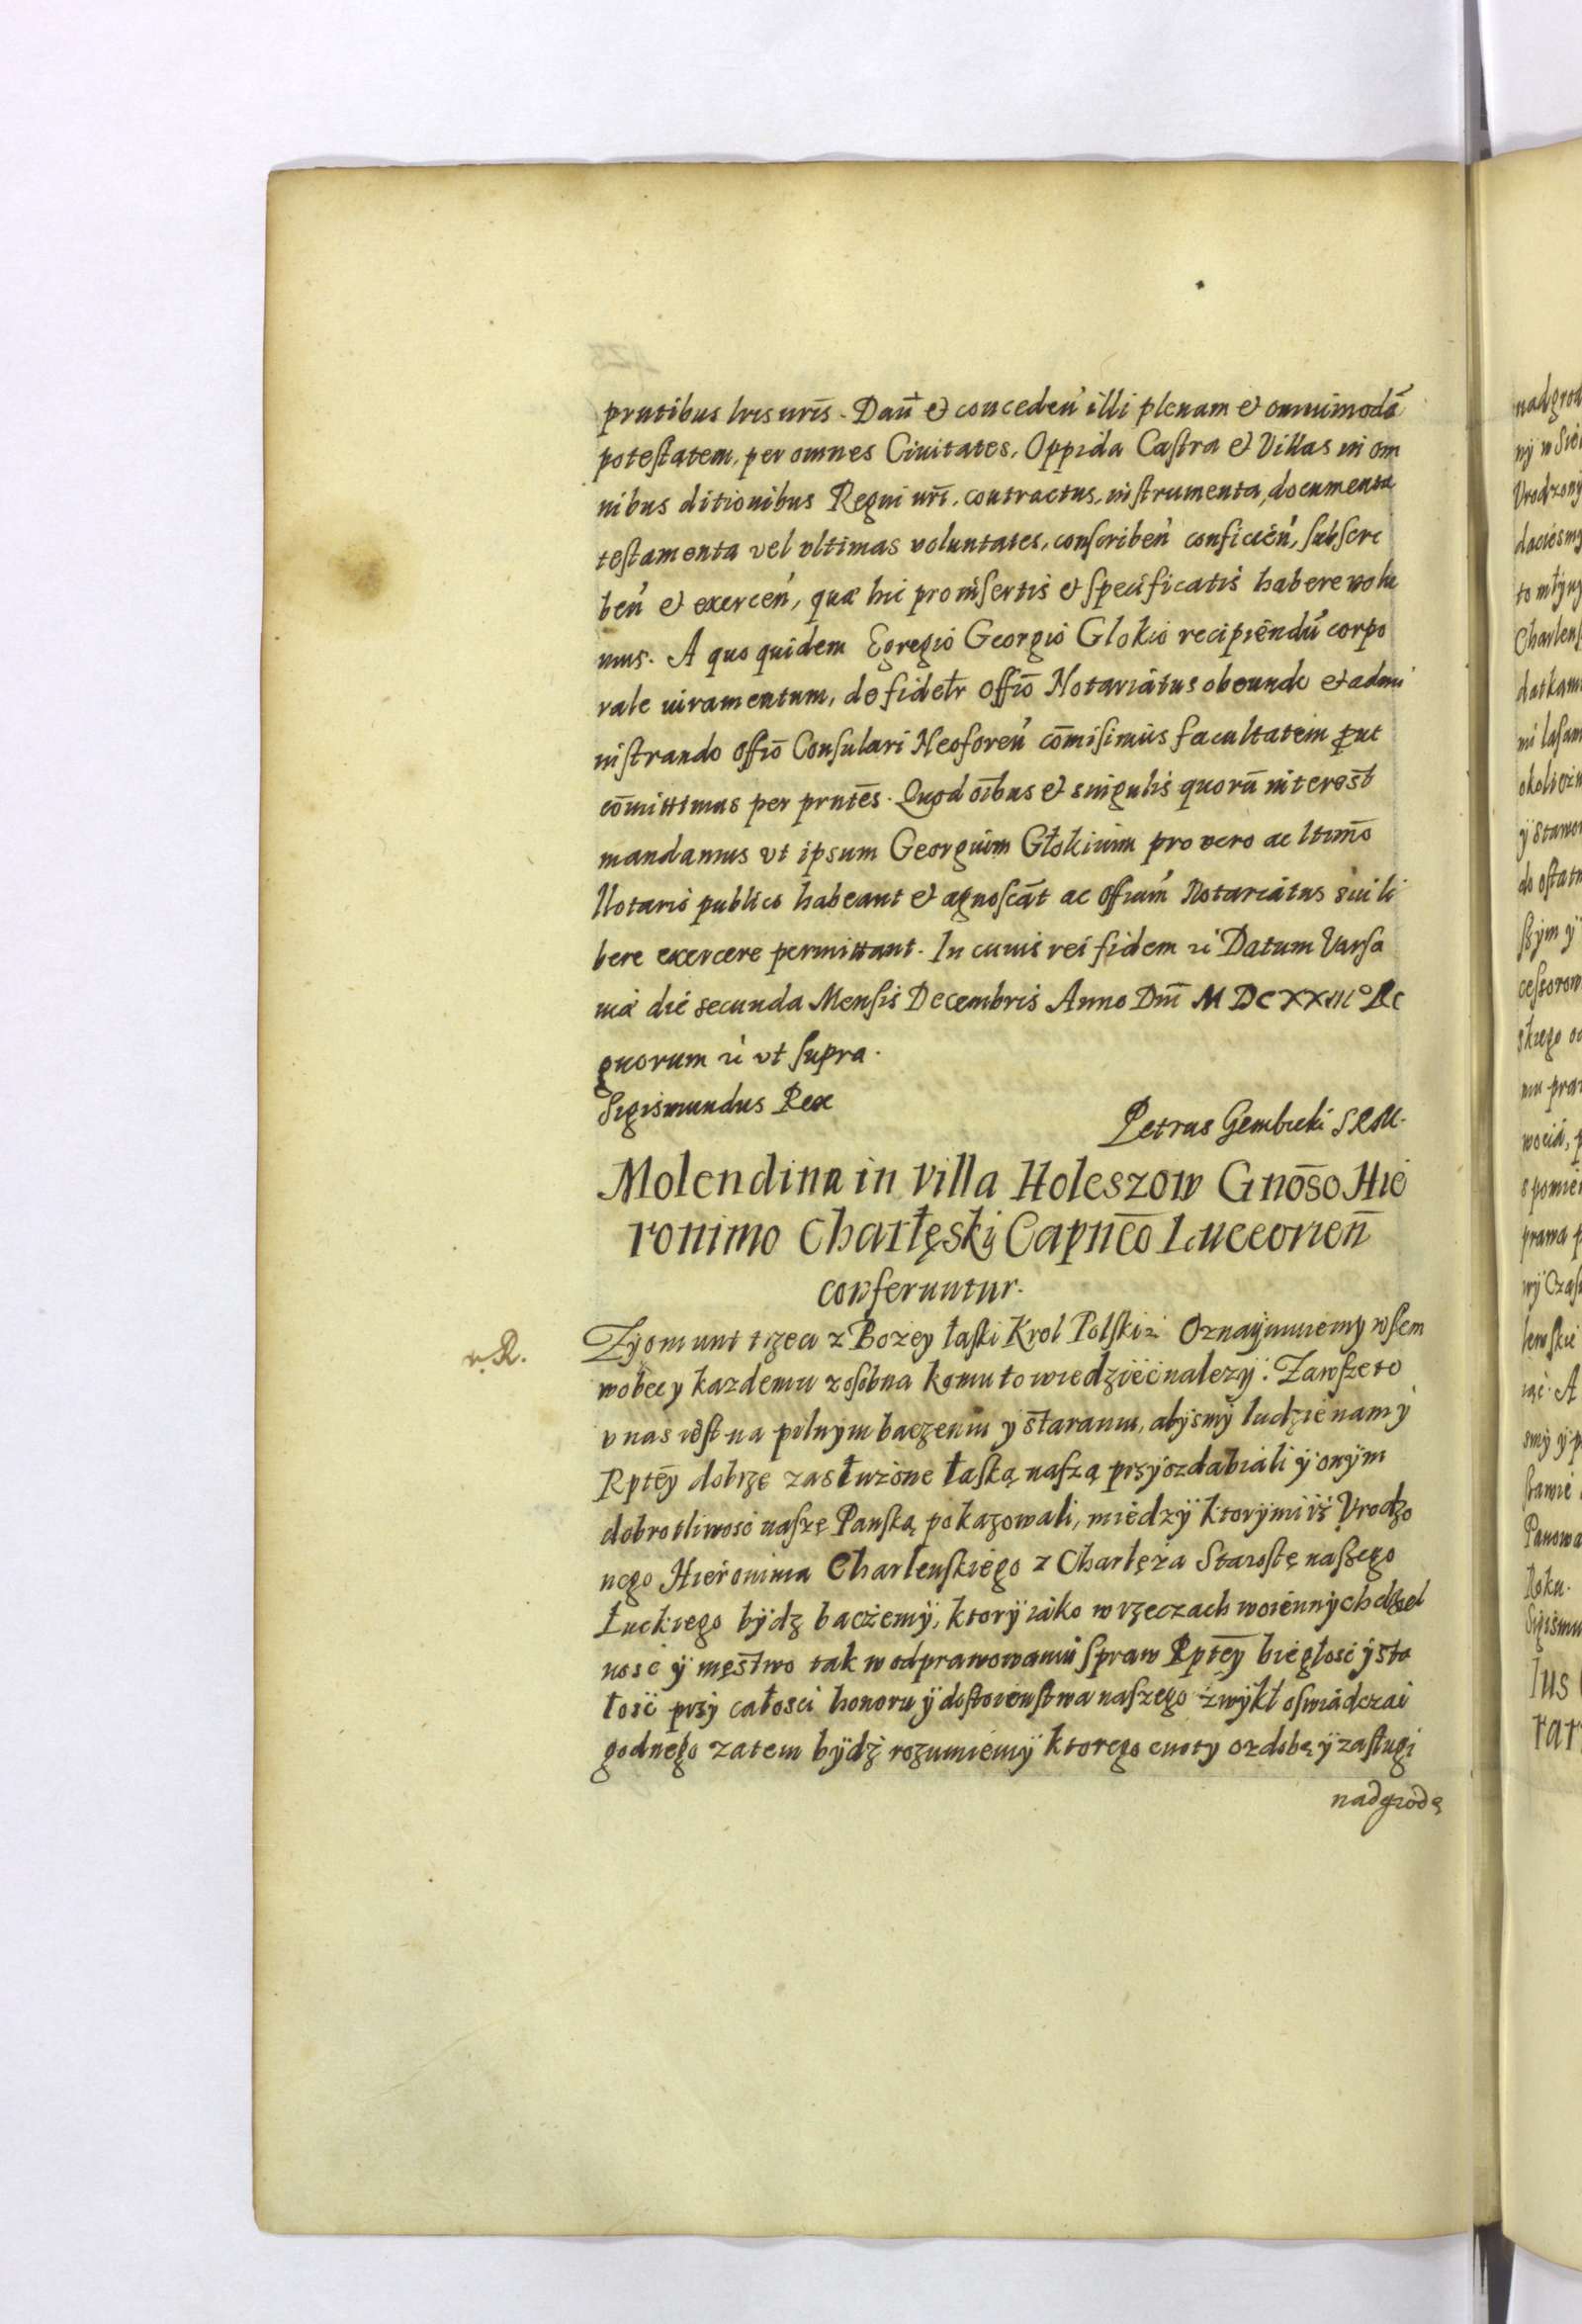 prntibus lris nris. Dan̄t & conceden̄ illi plenam & omnimodā
potestatem, per omnes Ciuitates, Oppida Castra & Villas in om
nibus ditionibus Regni nrī, contractus, instrumenta, documenta
testamenta vel vltimas voluntates, conscriben̄ conficień, subscri
ben̄ & exercen̄, quæ hic pro insertis & specificatis habere volu
mus. A quo quidem Egregio Georgio Glokio recipiendū corpo
rale iuramentum, de fidelr offīo Notariatus obeundo & admi
nistrando offīo Consulari Neoforen̄ cōmisimus facultatem prut
cōmittimus per prntēs. Quod oībus & singulis quorū interest
mandamus vt ipsum Georgium Głokium pro vero ac ltimō
Notario publico habeant & agnoscāt ac offium̄ Notariatus sui li
bere exercere permittant. In cuius rei fidem ꝛc Datum Varsa
uiæ die secunda Mensis Decembris Anno Dnī M DCXXIIIº Re
gnorum ꝛc vt supra.
Sigismundus Rex
Petrus Gembicki S R M.
Molendina in villa Holeszow Gnōso Hie
ronimo Charłęskÿ Capnēo Luceorien̄
conferuntur.
v. R.
Zÿgmunt trzeci z Bożey łaski Krol Polski ꝛc Oznaÿmuiemy wszem
wobec y kazdemu z osobna komu to wiedzieć należÿ. Zawsze to
v nas iest na pilnym baczeniu ÿ staraniu, abÿsmÿ ludzie nam ÿ
Rptēy dobrze zasłużone łaską naszą przÿozdabiali ÿ onÿm
dobrotliwosc naszę Panską pokazowali, miedzÿ ktorÿmi iż Vrodzo
nego Hieronima Charlenskiego z Charłęża Starostę naszego
Łuckiego bÿdz baczemÿ, ktorÿ iáko w rzeczach woiennÿch dziel
nosc ÿ męstwo tak w odprawowaniu spraw Rptēy biegłosc ÿ sta
łosc przÿ całosci honoru ÿ dostoienstwa naszego zwÿkł oswiádczai
godnego zatem bÿdz rozumiemÿ ktorego cnoty ozdobę ÿ zasługi
nadgrodę